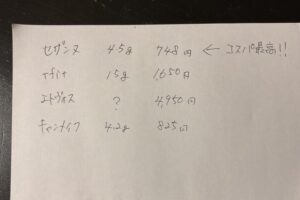 セザンヌ 4.5g 748円 ← コスパ最高!!
tfit 15g 1,650円
エトヴォス ? 4,950円
キャンメイク 4.2g 825円